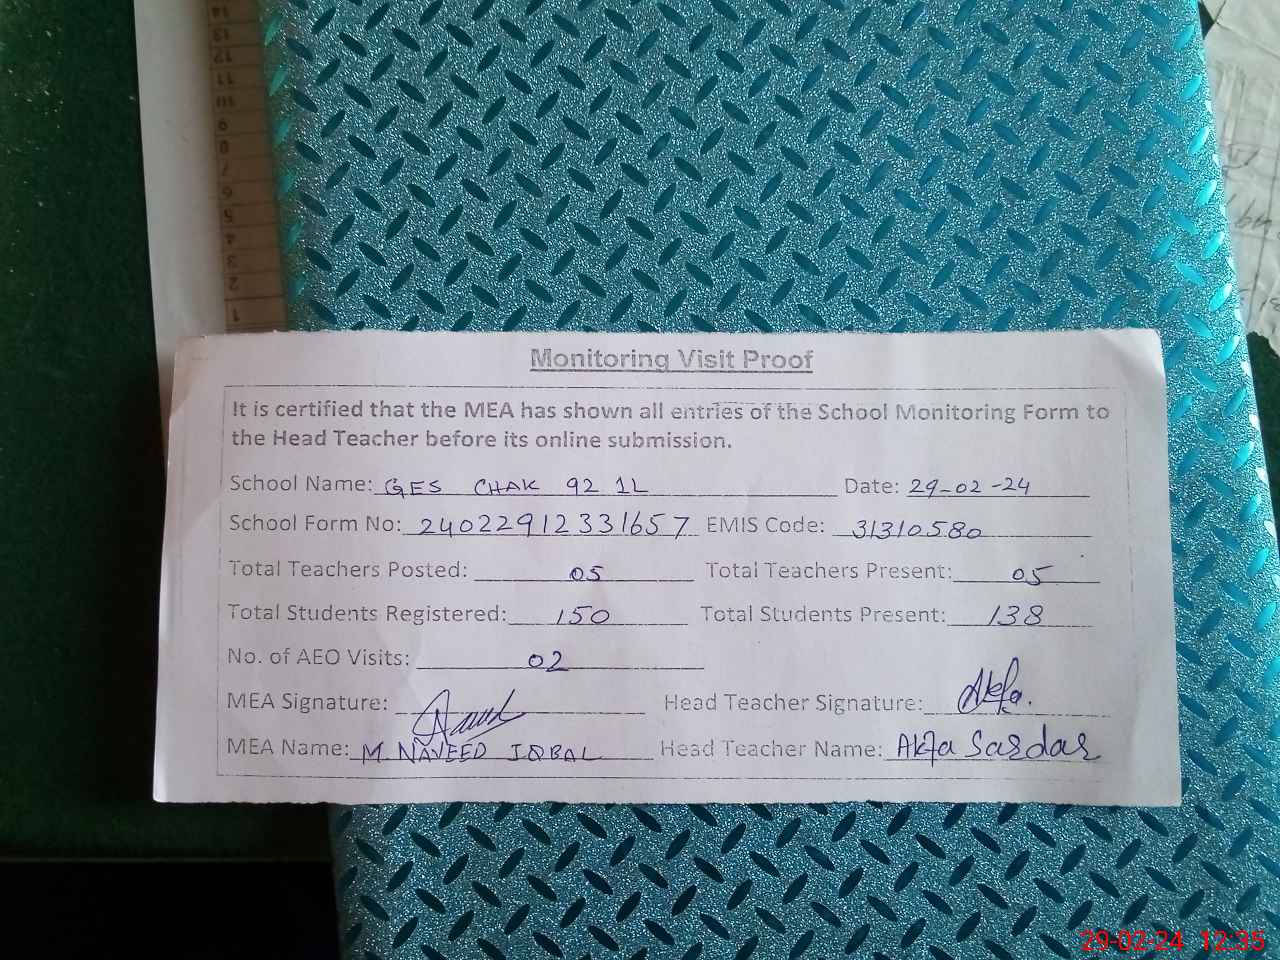 14
13
12
11
10
9
8
7
6
5
4
3
2
1
Monitoring Visit Proof
It is certified that the MEA has shown all entries of the School Monitoring Form to
the Head Teacher before its online submission.
School Name: GES CHAK 92 1L Date: 29-02-24
School Form No: 24022912331657 EMIS Code: 31310580
Total Teachers Posted: 05 Total Teachers Present: 05
Total Students Registered: 150 Total Students Present: 138
No. of AEO Visits: 02
MEA Signature: Head Teacher Signature:
MEA Name: M NAVEED IQBAL Head Teacher Name: Akfa Sardar
29-02-24 12:35